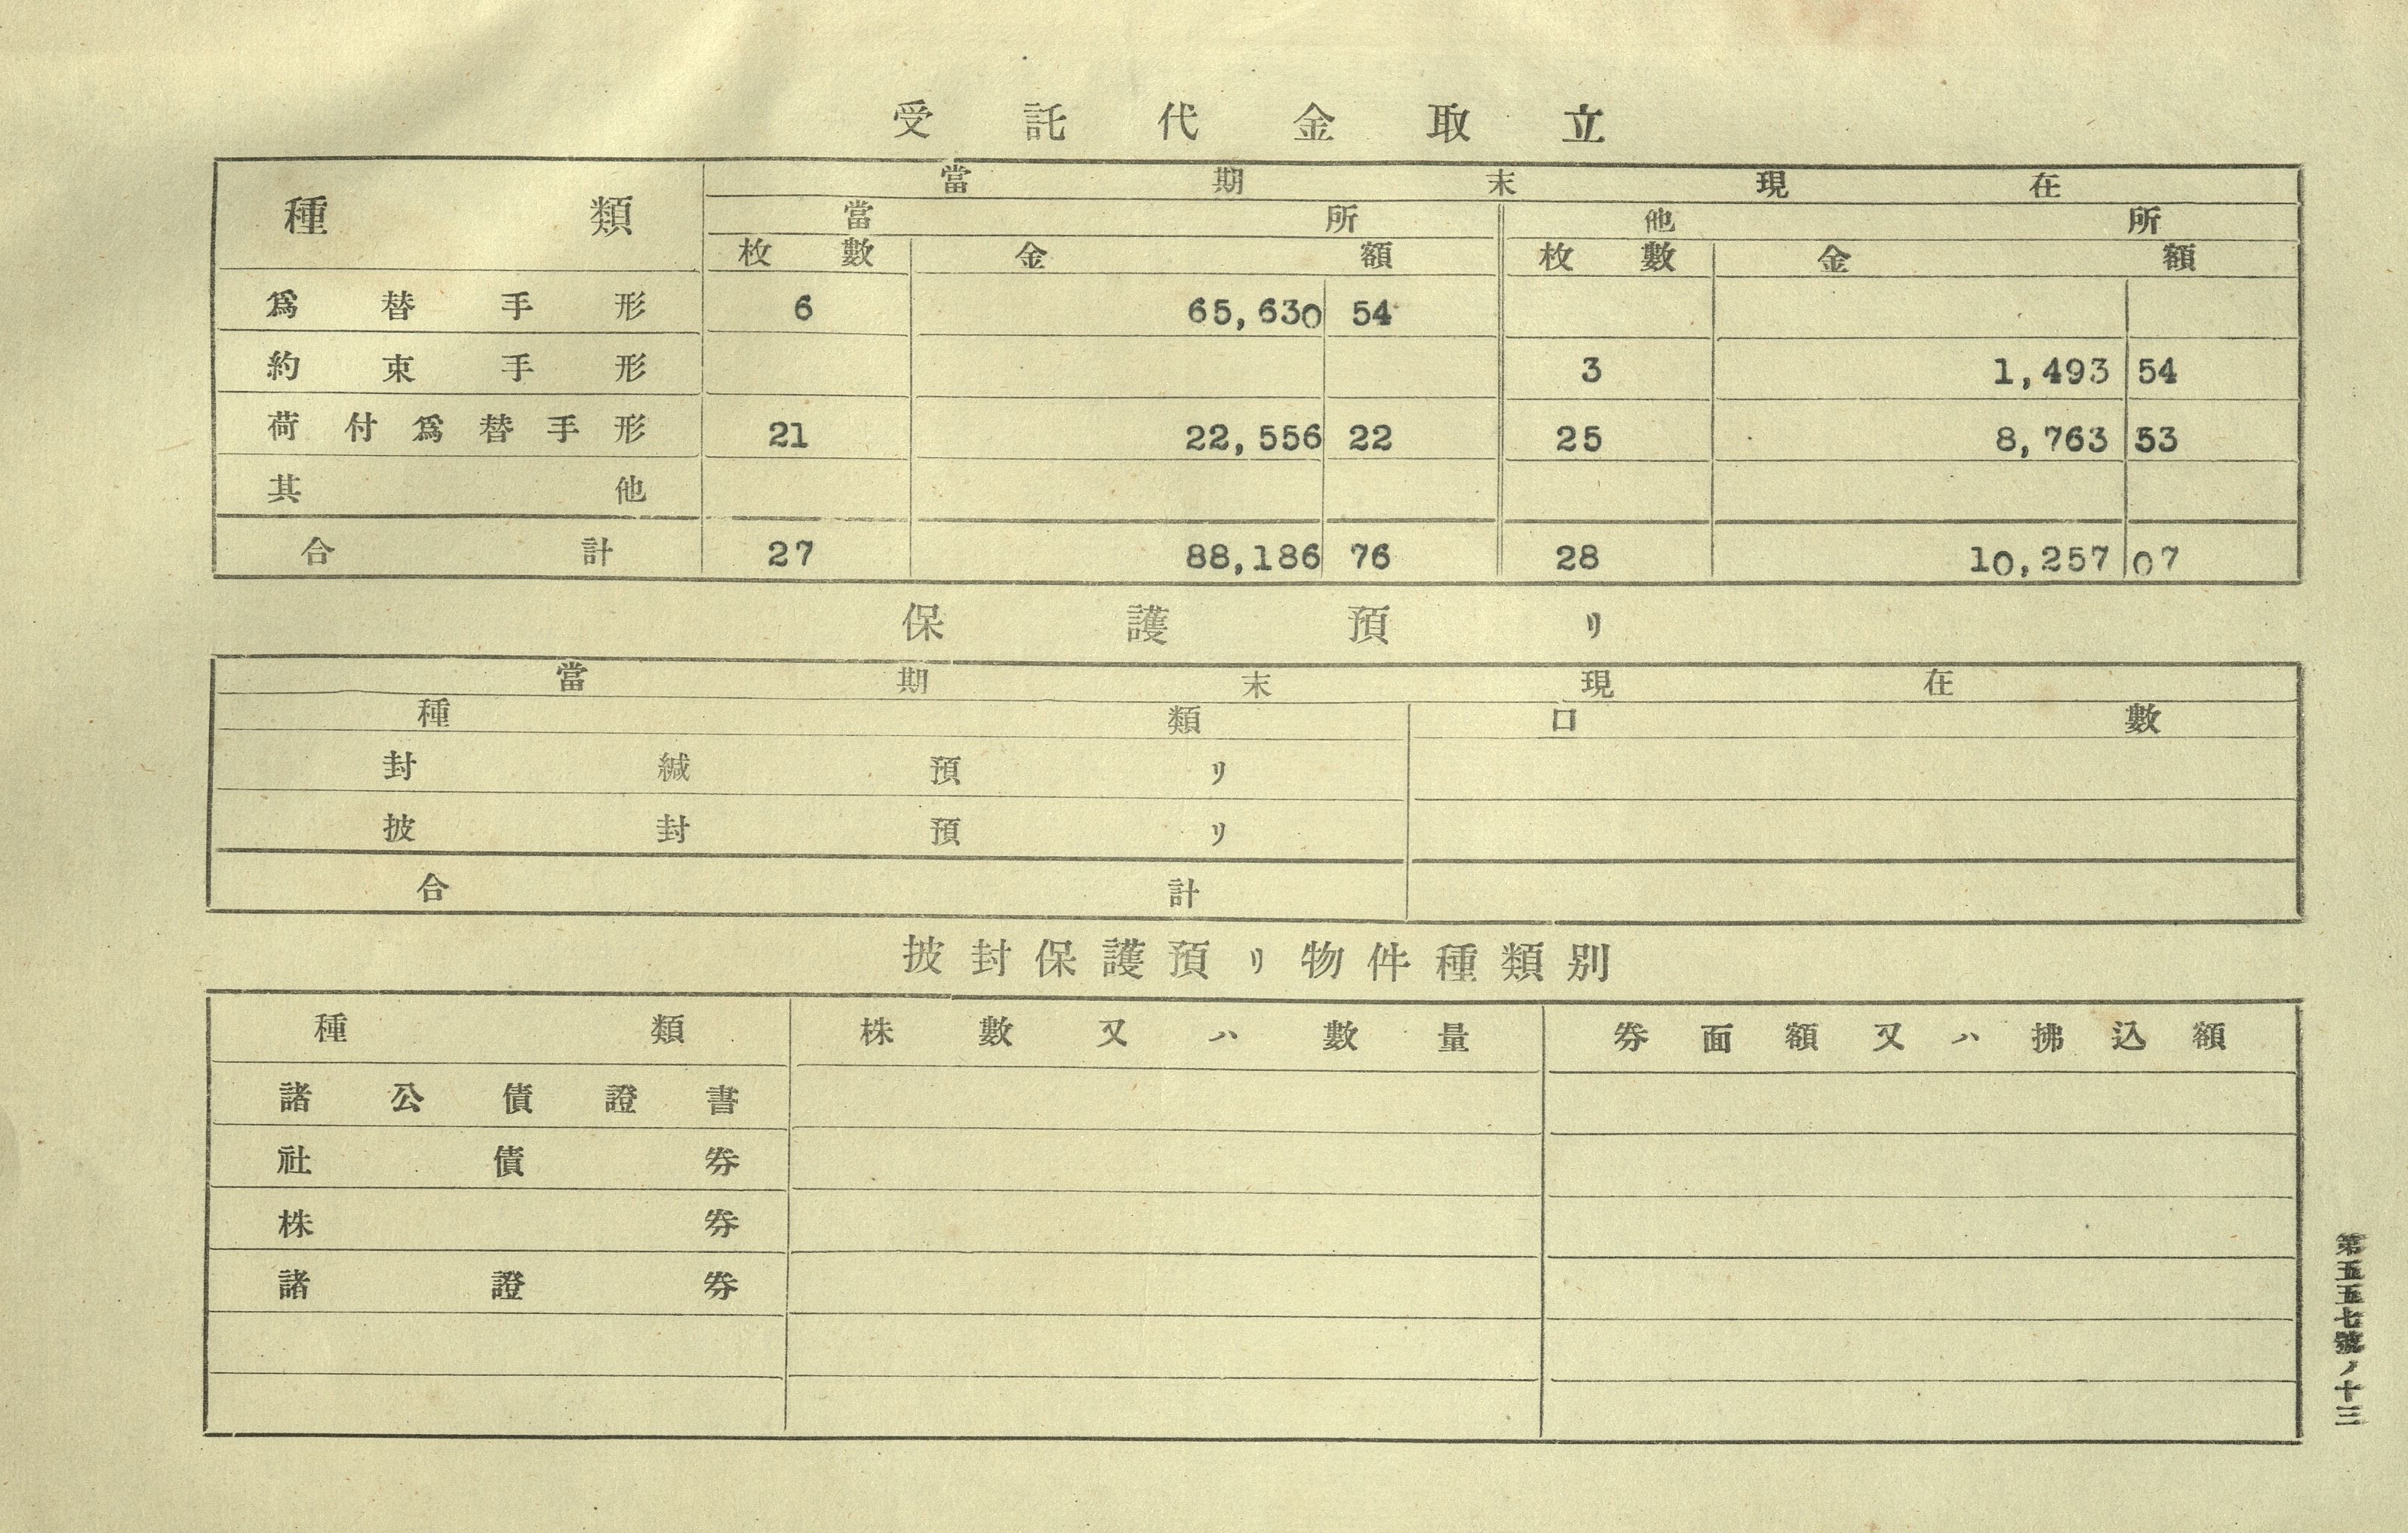 受託代金取立
種類 當期末現在
當所 他所
枚數 金額 枚數 金額
爲替手形 6 65,630 54
約束手形 3 1,493 54
荷付爲替手形 21 22,556 22 25 8,763 53
其他
合計 27 88,186 76 28 10,257 07
保護預リ
當期末現在
種類 口數
封緘預リ
披封預リ
合計
披封保護預リ物件種類別
種類 株數又ハ數量 券面額又ハ拂込額
諸公債證書
社債券
株券
諸證券
第五五七號ノ十三